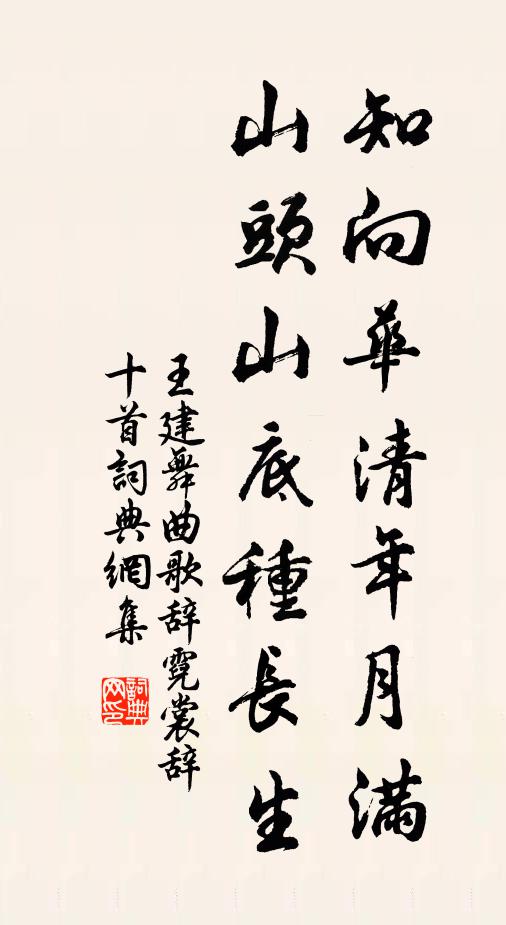 知向華清年月滿
山頭山底種長生
王建舞曲歌辞霓裳辞
十首詞典網集
詞典网印